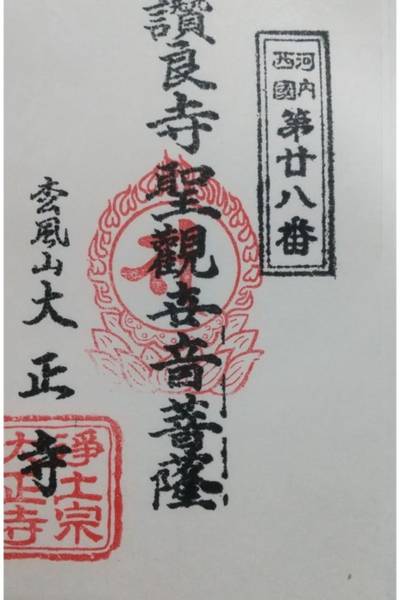 河内
西國
第廿八番
讚良寺聖觀世音菩薩
枩風山大正寺
淨土宗
大正寺